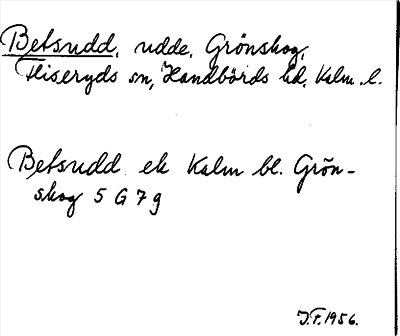 Betsudd, udde, Grönskog,
Fliseryds sn, Handbörds hd, Kalm. l.
Betsudd ek Kalm bl. Grön-
skog 5 G 7 g
J.P. 1956.